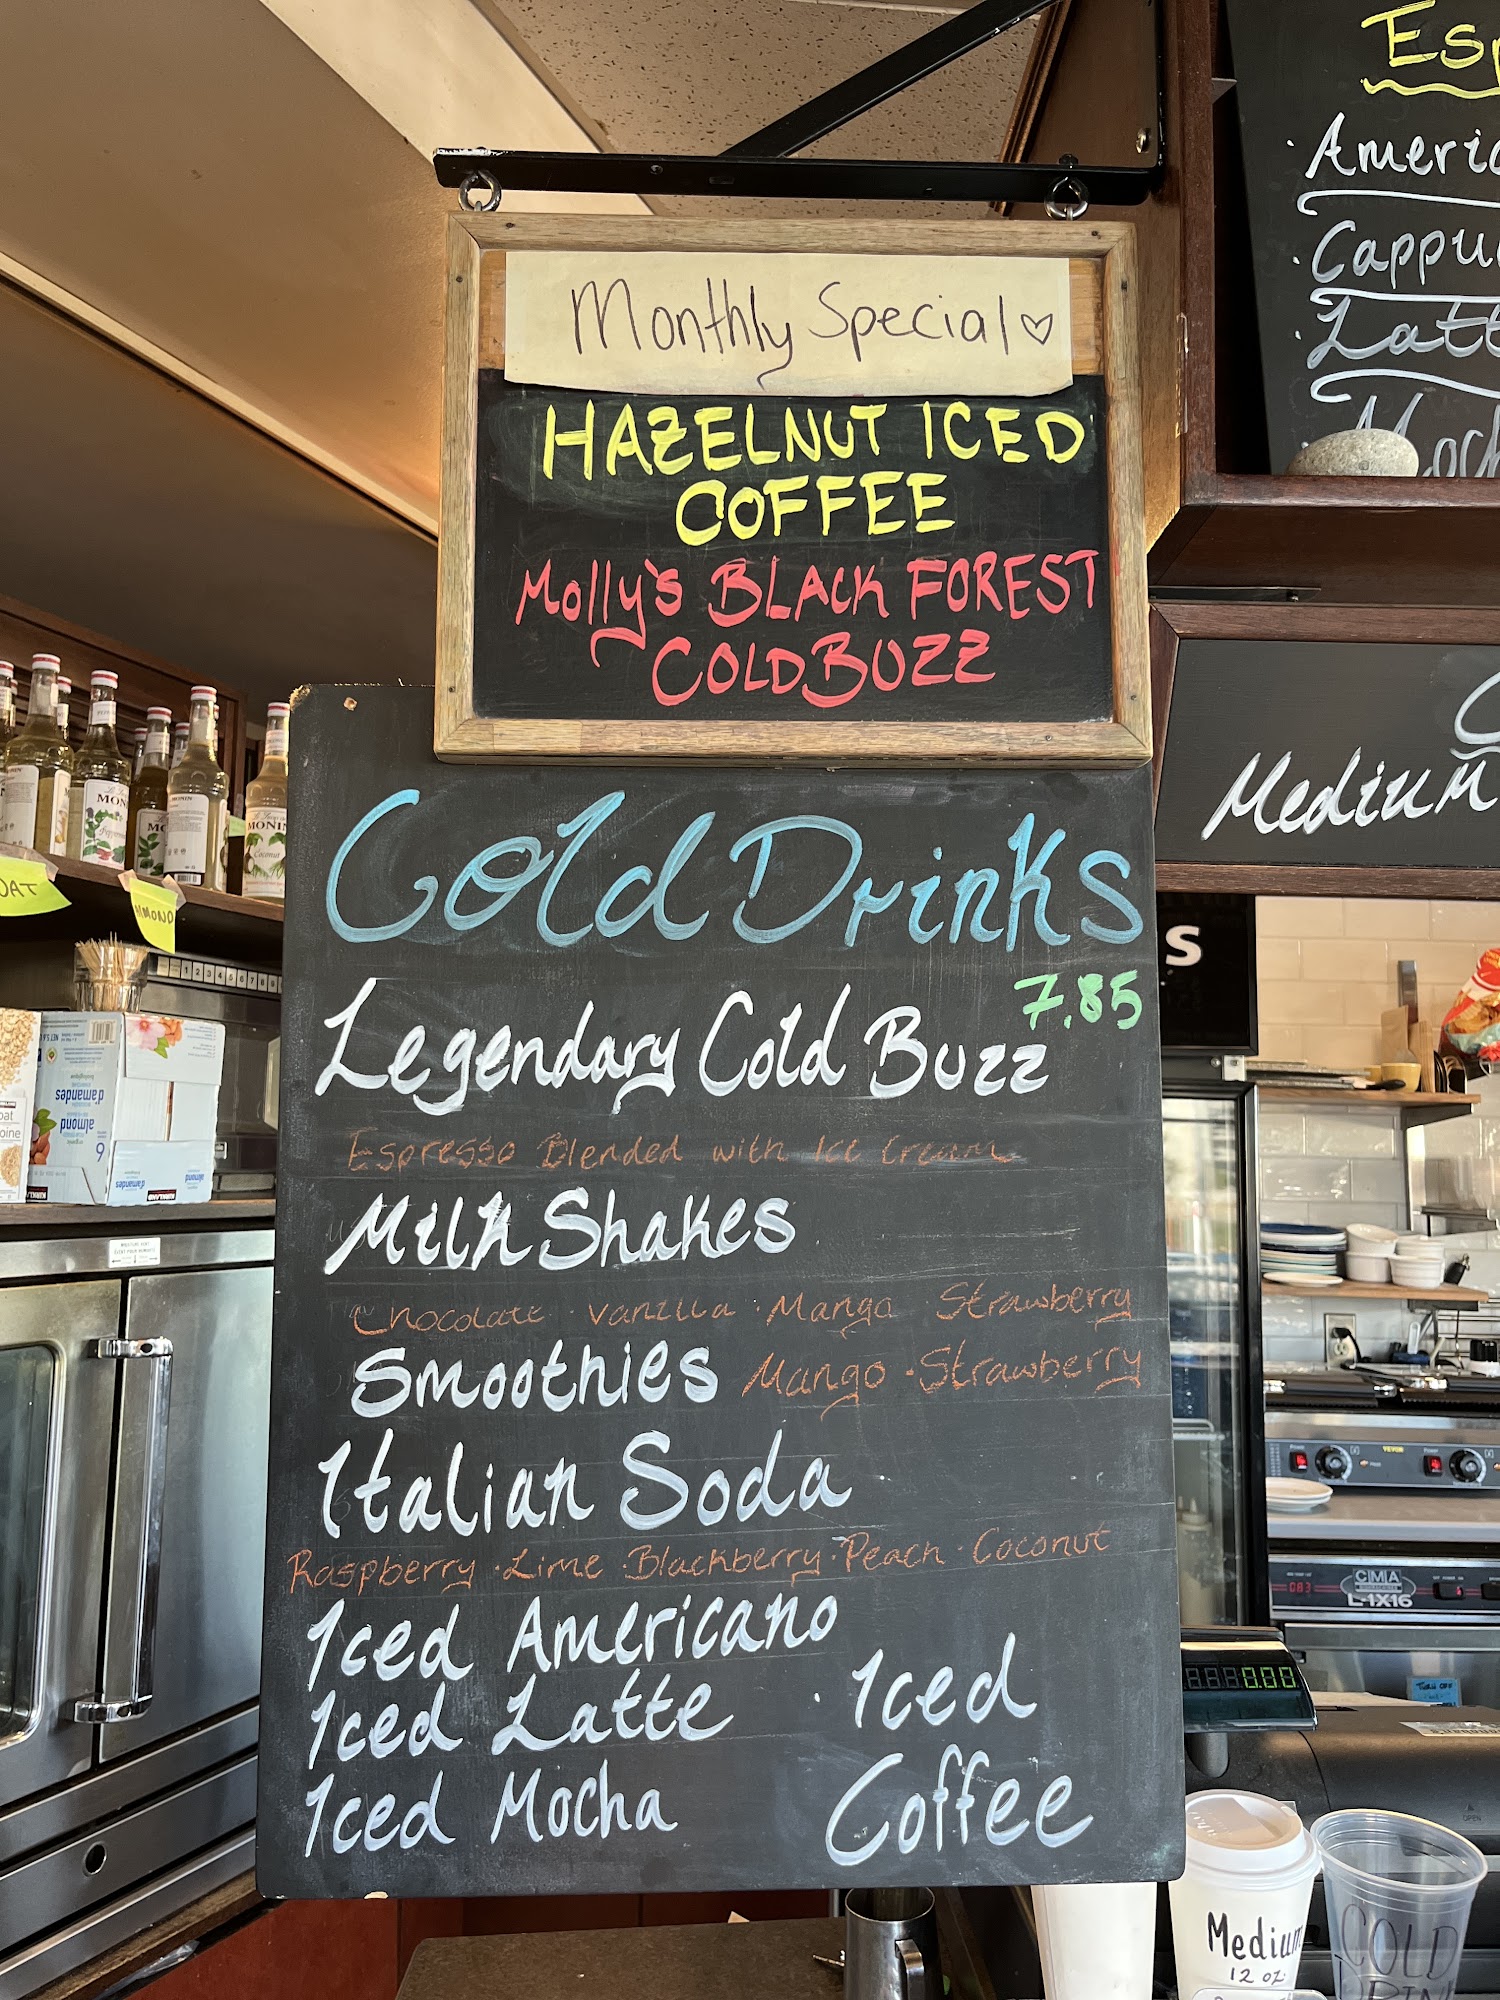 Monthly Special ♡
HAZELNUT ICED
COFFEE
Molly's BLACK FOREST
COLDBUZZ
Cold Drinks
7.85
Legendary Cold Buzz
Espresso Blended with Ice Cream
Milk Shakes
Chocolate · Vanilla · Mango · Strawberry
Smoothies Mango · Strawberry
Italian Soda
Raspberry · Lime · Blackberry · Peach · Coconut
Iced Americano
Iced Latte
Iced Mocha
· Iced
Coffee
Esp
· Americ
· Cappu
· Latt
Moch
Medium
S
MONIN
MONIN
Coconut
OAT
ALMOND
1 2 3 4 5 6 7 8 9
d'amandes
almond
6
KIRKLAND
CMA
L-1X16
083
0.00
Medium
12 oz
COLD
DRIN